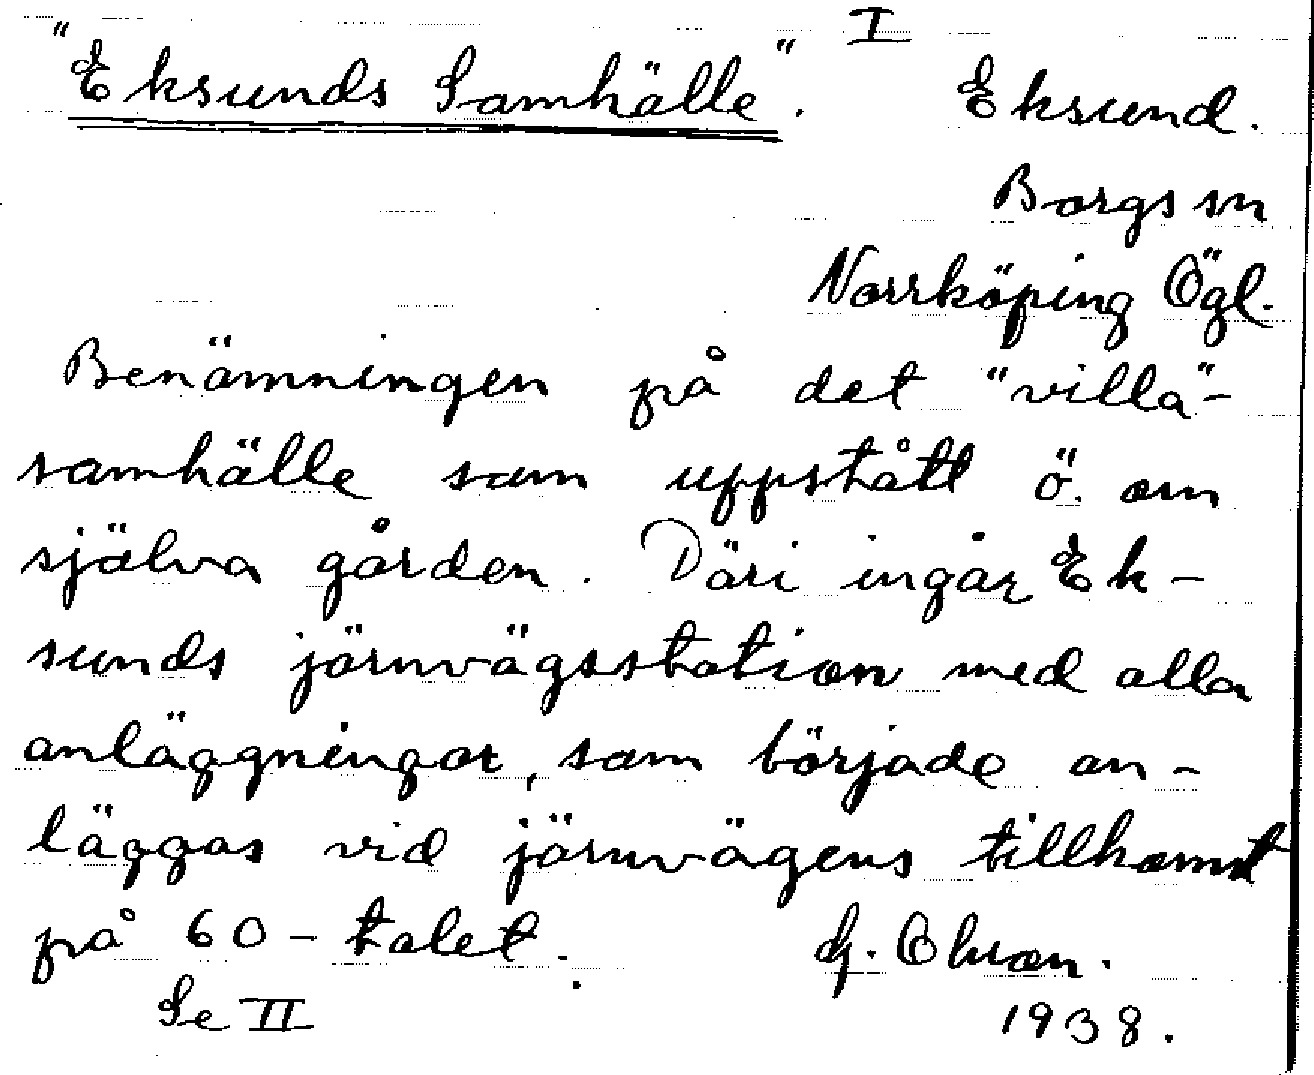 I
"Eksunds Samhälle". Eksund.
Borgs sn
Norrköping Ögl.
Benämningen på det "villa"-
samhälle som uppstått ö. om
själva gården. Däri ingår Ek-
sunds järnvägsstation med alla
anläggningar, som började an-
läggas vid järnvägens tillkomst
på 60-talet. G. Olsson.
Se II 1938.